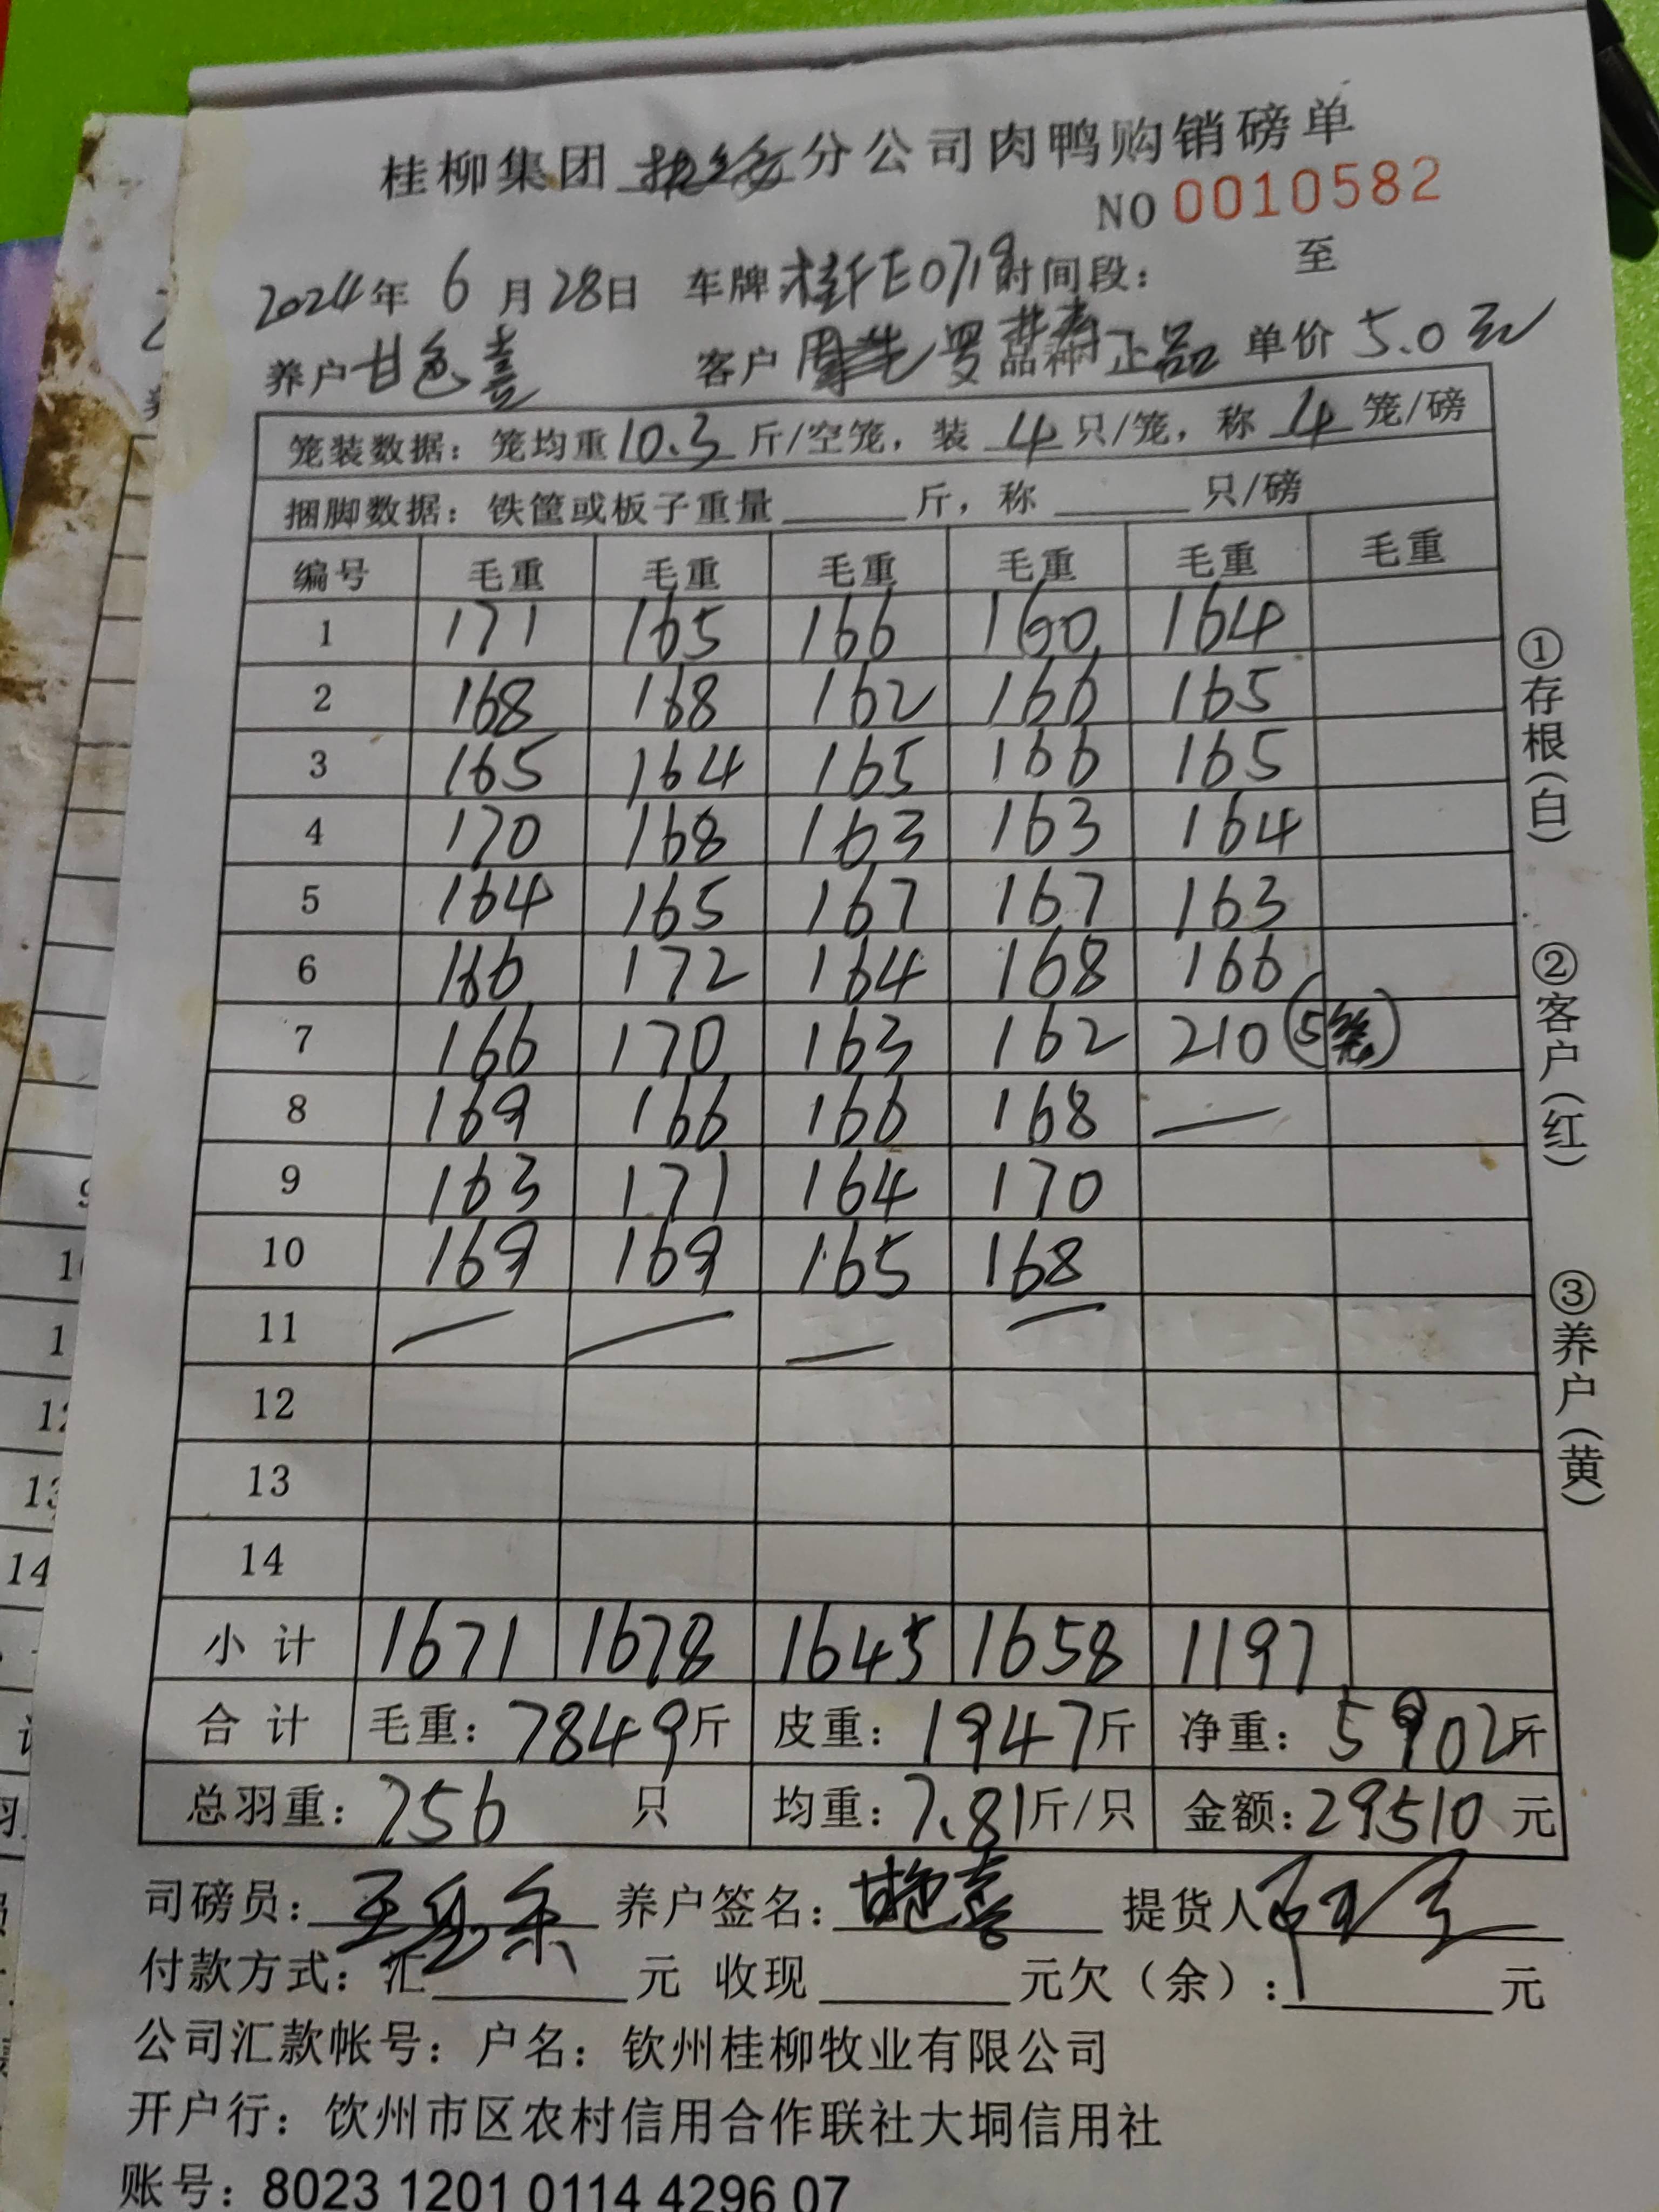 桂柳集团 分公司肉鸭购销磅单
NO 0010582
2024年 6 月 28日 车牌 桂FE0719 时间段： 至
养户 甘色喜 客户 罗 品种 正品 单价 5.0元
笼装数据：笼均重 10.3 斤/空笼，装 4 只/笼，称 4 笼/磅
捆脚数据：铁筐或板子重量 斤，称 只/磅
编号 毛重 毛重 毛重 毛重 毛重 毛重
1 171 165 166 160 164
2 168 168 162 166 165
3 165 164 165 166 165
4 170 168 163 163 164
5 164 165 167 167 163
6 166 172 164 168 166
7 166 170 163 162 210 (5笼)
8 169 166 166 168 —
9 163 171 164 170
10 169 169 165 168
11 — — — —
12
13
14
小计 1671 1678 1645 1658 1197
合计 毛重：7849斤 皮重：1947斤 净重：5902斤
总羽重：756 只 均重：7.81斤/只 金额：29510 元
①存根（白） ②客户（红） ③养户（黄）
司磅员： 养户签名： 提货人
付款方式：汇 元 收现 元欠（余）： 元
公司汇款帐号：户名：钦州桂柳牧业有限公司
开户行：钦州市区农村信用合作联社大垌信用社
账号：8023 1201 0114 4296 07